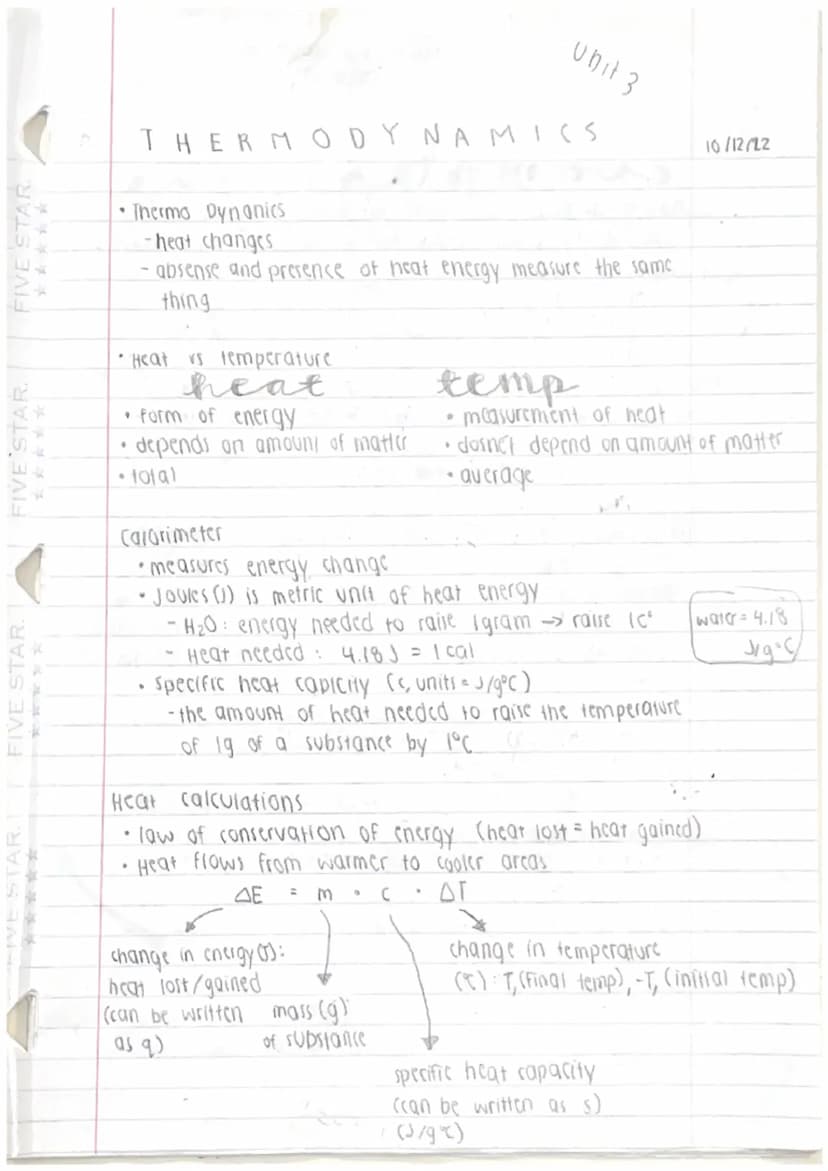 Unit 3
THERMODYNAMICS
10/12/22
• Thermo Dynanics
- heat changes
- absense and presence of heat energy measure the same
thing
• Heat vs temperature
heat temp
• form of energy • measurement of heat
• depends on amount of matter • dosnet depend on amount of matter
• total • average
Calorimeter
• measures energy change
• Joules (J) is metric unit of heat energy
- H₂O : energy needed to raise 1gram → raise 1C°
- Heat needed : 4.18 J = 1 cal
water = 4.18
J/g°C
• specific heat capicity (c, units = J/g°C)
- the amount of heat needed to raise the temperature
of 1g of a substance by 1°C
Heat calculations
• law of conservation of energy (heat lost = heat gained)
• Heat flows from warmer to cooler areas
ΔE = m • c • ΔT
change in energy (J):
heat lost/gained
(can be written
as q)
mass (g)
of substance
change in temperature
(℃) : T, (final temp), -T, (initial temp)
specific heat capacity
(can be written as s)
(J/g ℃)
FIVE STAR.
FIVE STAR.
FIVE STAR.
FIVE STAR.